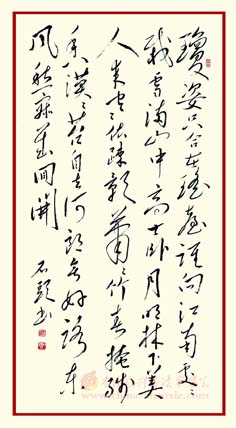 瓊姿只合在瑤臺誰向江南處々
栽雪滿山中高士卧月明林下美
人來寒依疎影蕭々竹春掩殘
香漠々苔自去何郎無好詠東
風愁寂幾回開